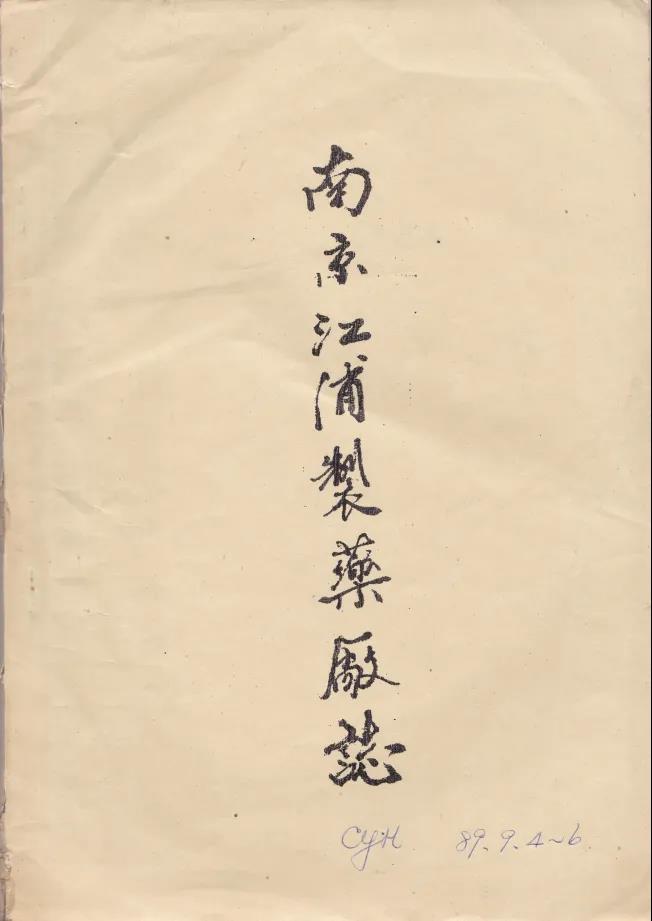 南京江浦製藥厰誌
CYH 89.9.4~6